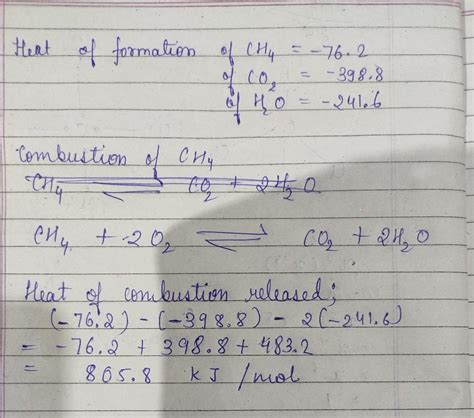 Heat of formation of CH₄ = -76.2
of CO₂ = -398.8
of H₂O = -241.6
Combustion of CH₄
CH₄ ⇌ CO₂ + 2H₂O
CH₄ + 2O₂ ⇌ CO₂ + 2H₂O
Heat of combustion released;
(-76.2) - (-398.8) - 2(-241.6)
= -76.2 + 398.8 + 483.2
= 805.8 kJ /mol